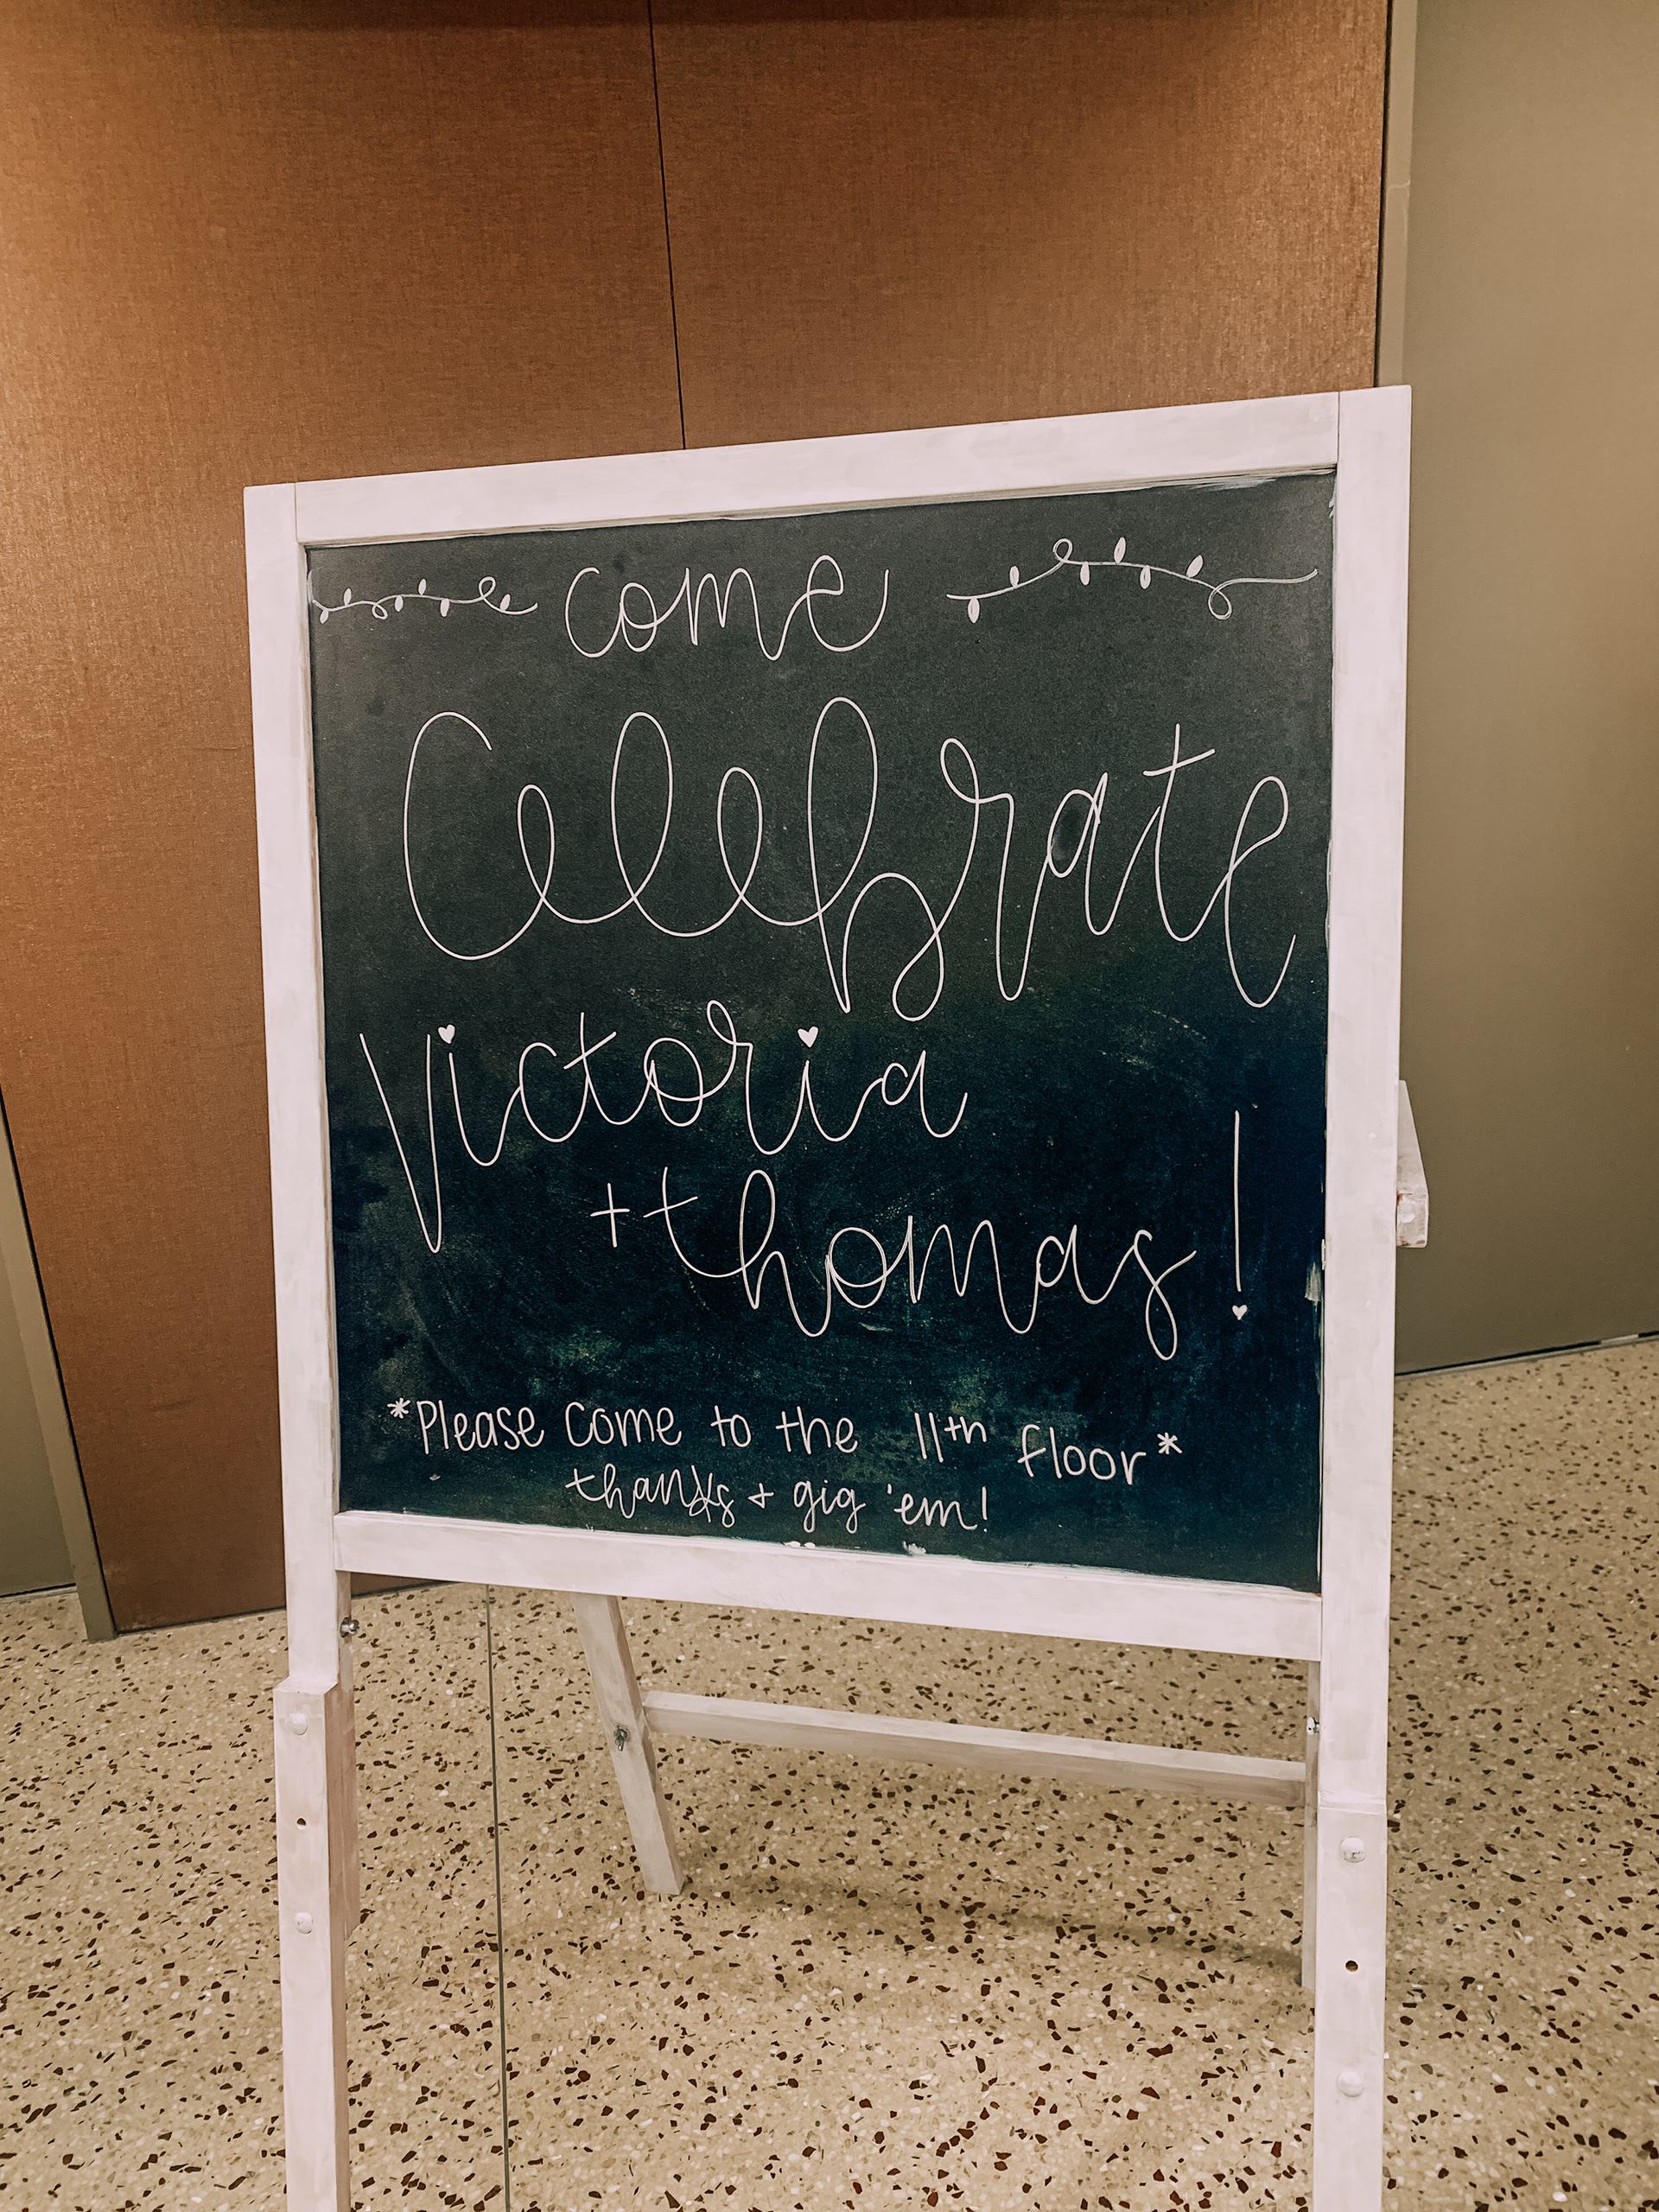 come
Celebrate
Victoria
+ thomas!
*Please come to the 11th floor*
thanks + gig 'em!